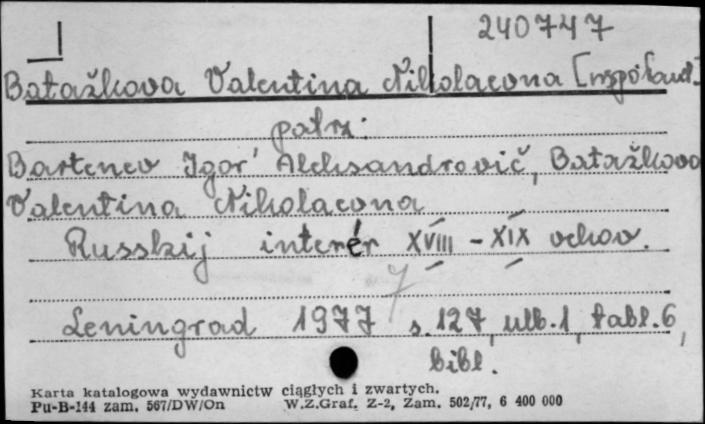 240747
Batažkova Valentina Nikolaevna [współaut.]
patrz:
Bartenev Igor' Aleksandrovič, Batažkova
Valentina Nikolaevna
Russkij inter'ér XVIII - XIX vekov.
7
Leningrad 1977 s. 127, ulb. 1, tabl. 6,
bibl.
Karta katalogowa wydawnictw ciągłych i zwartych.
Pu-B-144 zam. 567/DW/On W.Z.Graf. Z-2, Zam. 502/77, 6 400 000